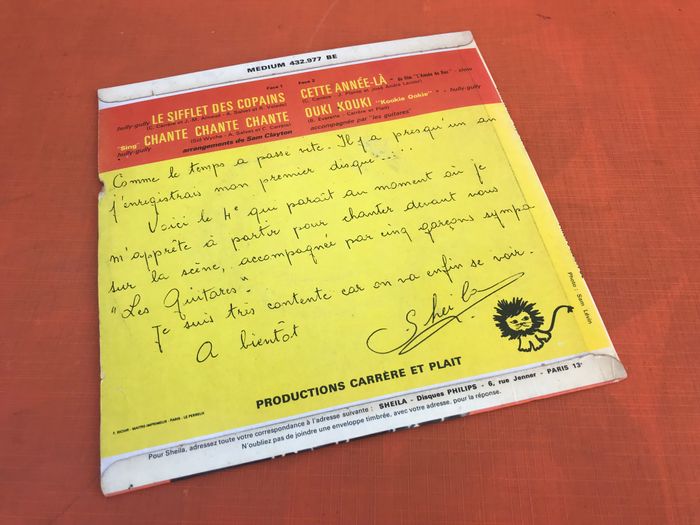 MEDIUM 432.977 BE
Face 1
hully-gully LE SIFFLET DES COPAINS
"Sing" CHANTE CHANTE CHANTE
hully-gully arrangements de Sam Clayton
Face 2
CETTE ANNÉE-LÀ
DUKI KOUKI "Kookie Ookie" - hully-gully
accompagnée par "les guitares"
Comme le temps a passé vite. Il y a presqu'un an
j'enregistrais mon premier disque
Voici le 4e qui paraît au moment où je
m'apprête à partir pour chanter devant vous
sur la scène, accompagnée par cinq garçons sympa
"Les Guitares".
Je suis très contente car on va enfin se voir.
A bientôt
Sheila
Photo : Sam Lévin
PRODUCTIONS CARRÈRE ET PLAIT
Pour Sheila, adressez toute votre correspondance à l'adresse suivante : SHEILA - Disques PHILIPS - 6, rue Jenner - PARIS 13e
N'oubliez pas de joindre une enveloppe timbrée, avec votre adresse, pour la réponse.